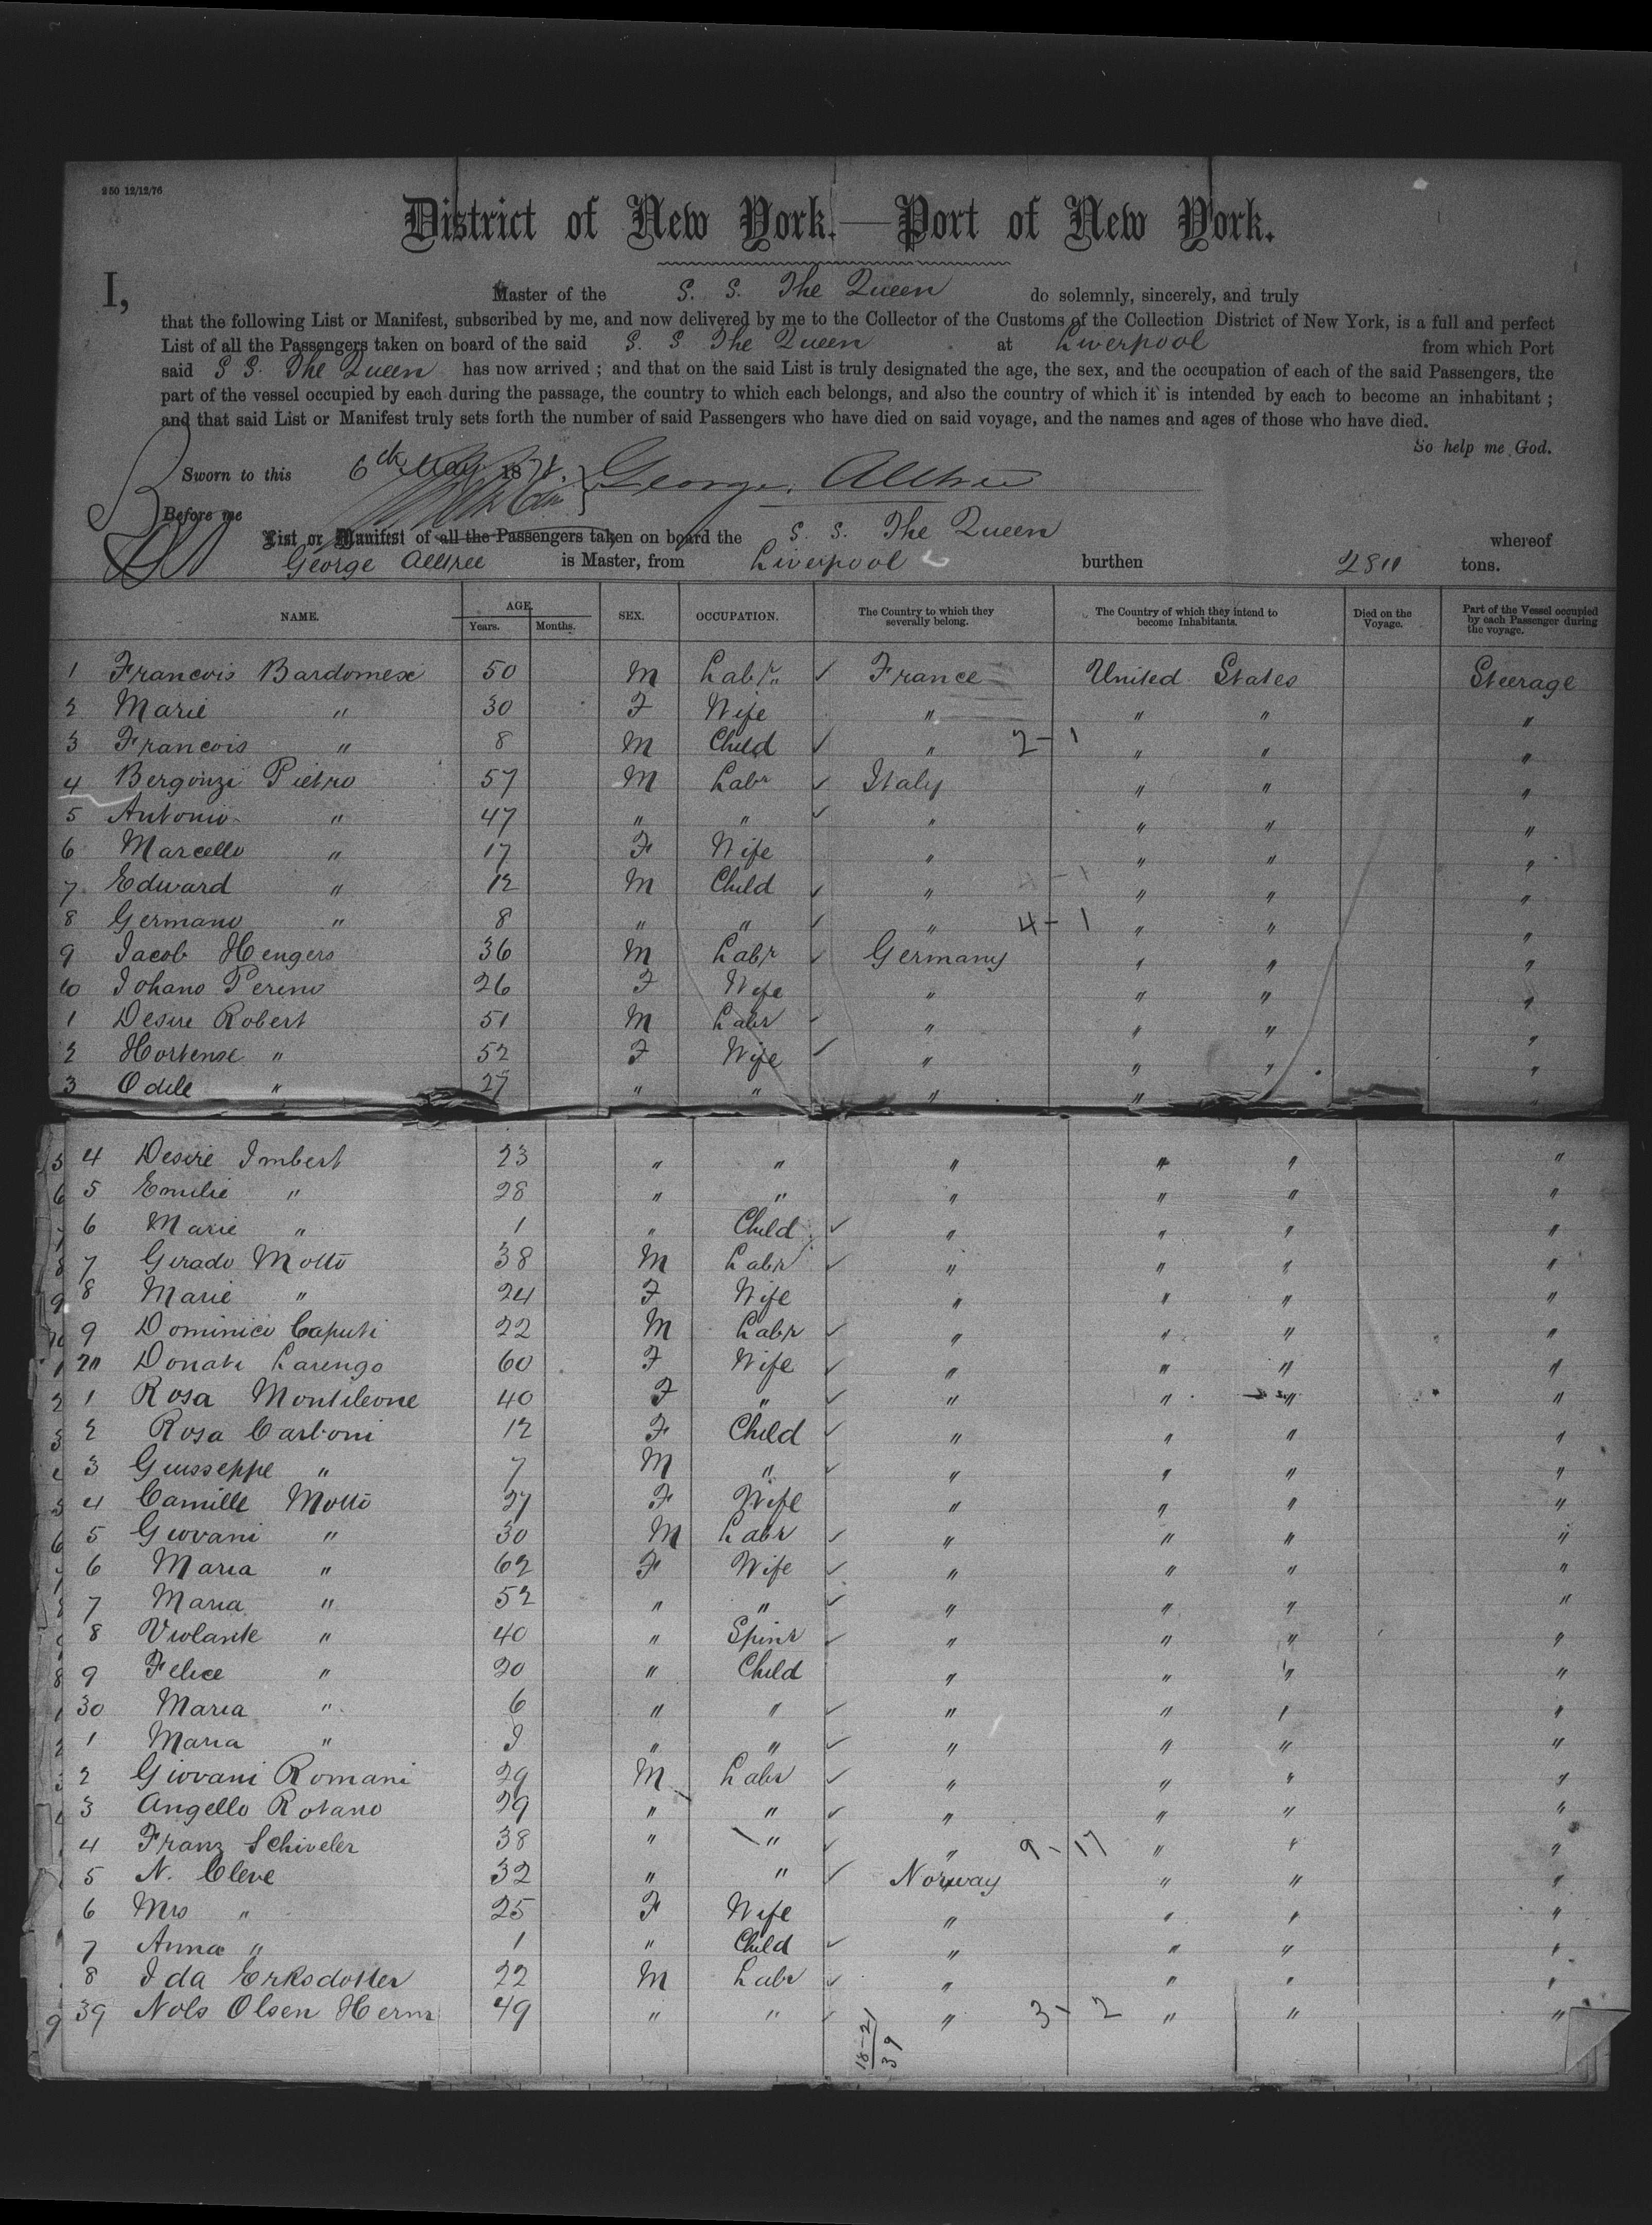 250 12/12/76
District of New York.—Port of New York.
I, Master of the S. S. The Queen do solemnly, sincerely, and truly
that the following List or Manifest, subscribed by me, and now delivered by me to the Collector of the Customs of the Collection District of New York, is a full and perfect
List of all the Passengers taken on board of the said S. S. The Queen at Liverpool from which Port
said S S. The Queen has now arrived ; and that on the said List is truly designated the age, the sex, and the occupation of each of the said Passengers, the
part of the vessel occupied by each during the passage, the country to which each belongs, and also the country of which it is intended by each to become an inhabitant ;
and that said List or Manifest truly sets forth the number of said Passengers who have died on said voyage, and the names and ages of those who have died.
So help me God.
Sworn to this 6th May 1878. George Alltree
Before me
List or Manifest of all the Passengers taken on board the S. S. The Queen whereof
George Alltree is Master, from Liverpool burthen tons.
NAME. AGE. Years. Months. SEX. OCCUPATION. The Country to which they severally belong. The Country of which they intend to become Inhabitants. Died on the Voyage. Part of the Vessel occupied by each Passenger during the voyage.
1 Francois Bardomex 50 M Labr ✓ France United States Steerage
2 Marie " 30 F Wife " " " "
3 Francois " 8 M Child ✓ " 2-1 " " "
4 Bergonzi Pietro 57 M Labr ✓ Italy " " "
5 Antonio " 47 " " ✓ " " " "
6 Marcello " 17 F Wife " " " "
7 Edward " 12 M Child ✓ " " " "
8 Germano " 8 " " ✓ " 4-1 " " "
9 Jacob Hengers 36 M Labr ✓ Germany " " "
10 Johano Pereno 26 F Wife " " " "
1 Desire Robert 51 M Labr ✓ " " " "
2 Hortense " 52 F Wife ✓ " " " "
3 Odile " 27 " " " " "
4 Desire Imbert 23 " " " " " "
5 Emilie " 28 " " " " " "
6 Marie " 1 " Child ✓ " " " "
7 Girado Motto 38 M Labr ✓ " " " "
8 Marie " 24 F Wife " " " "
9 Dominici Caputi 22 M Labr ✓ " " " "
20 Donati Larengo 60 F Wife ✓ " " " "
1 Rosa Montileone 40 F " ✓ " " " "
2 Rosa Carboni 12 F Child ✓ " " " "
3 Guisseppe " 7 M " ✓ " " " "
4 Camille Motto 27 F Wife " " " "
5 Giovani " 30 M Labr ✓ " " " "
6 Maria " 62 F Wife ✓ " " " "
7 Maria " 52 " " ✓ " " " "
8 Violante " 40 " Spinr ✓ " " " "
9 Felice " 20 " Child " " " "
30 Maria " 6 " " ✓ " " " "
1 Maria " " " ✓ " " " "
2 Giovani Romani 29 M Labr ✓ " " " "
3 Angello Rotano 29 " " ✓ " " " "
4 Franz Schiveler 38 " " ✓ " 9-17 " " "
5 N. Cleve 32 " " ✓ Norway " " "
6 Mrs " 25 F Wife " " " "
7 Anna " 1 " Child ✓ " " " "
8 Ida Erksdotter 22 M Labr ✓ " " " "
39 Nols Olsen Herm 49 " " ✓ " 3-2 " " "
18-21
39